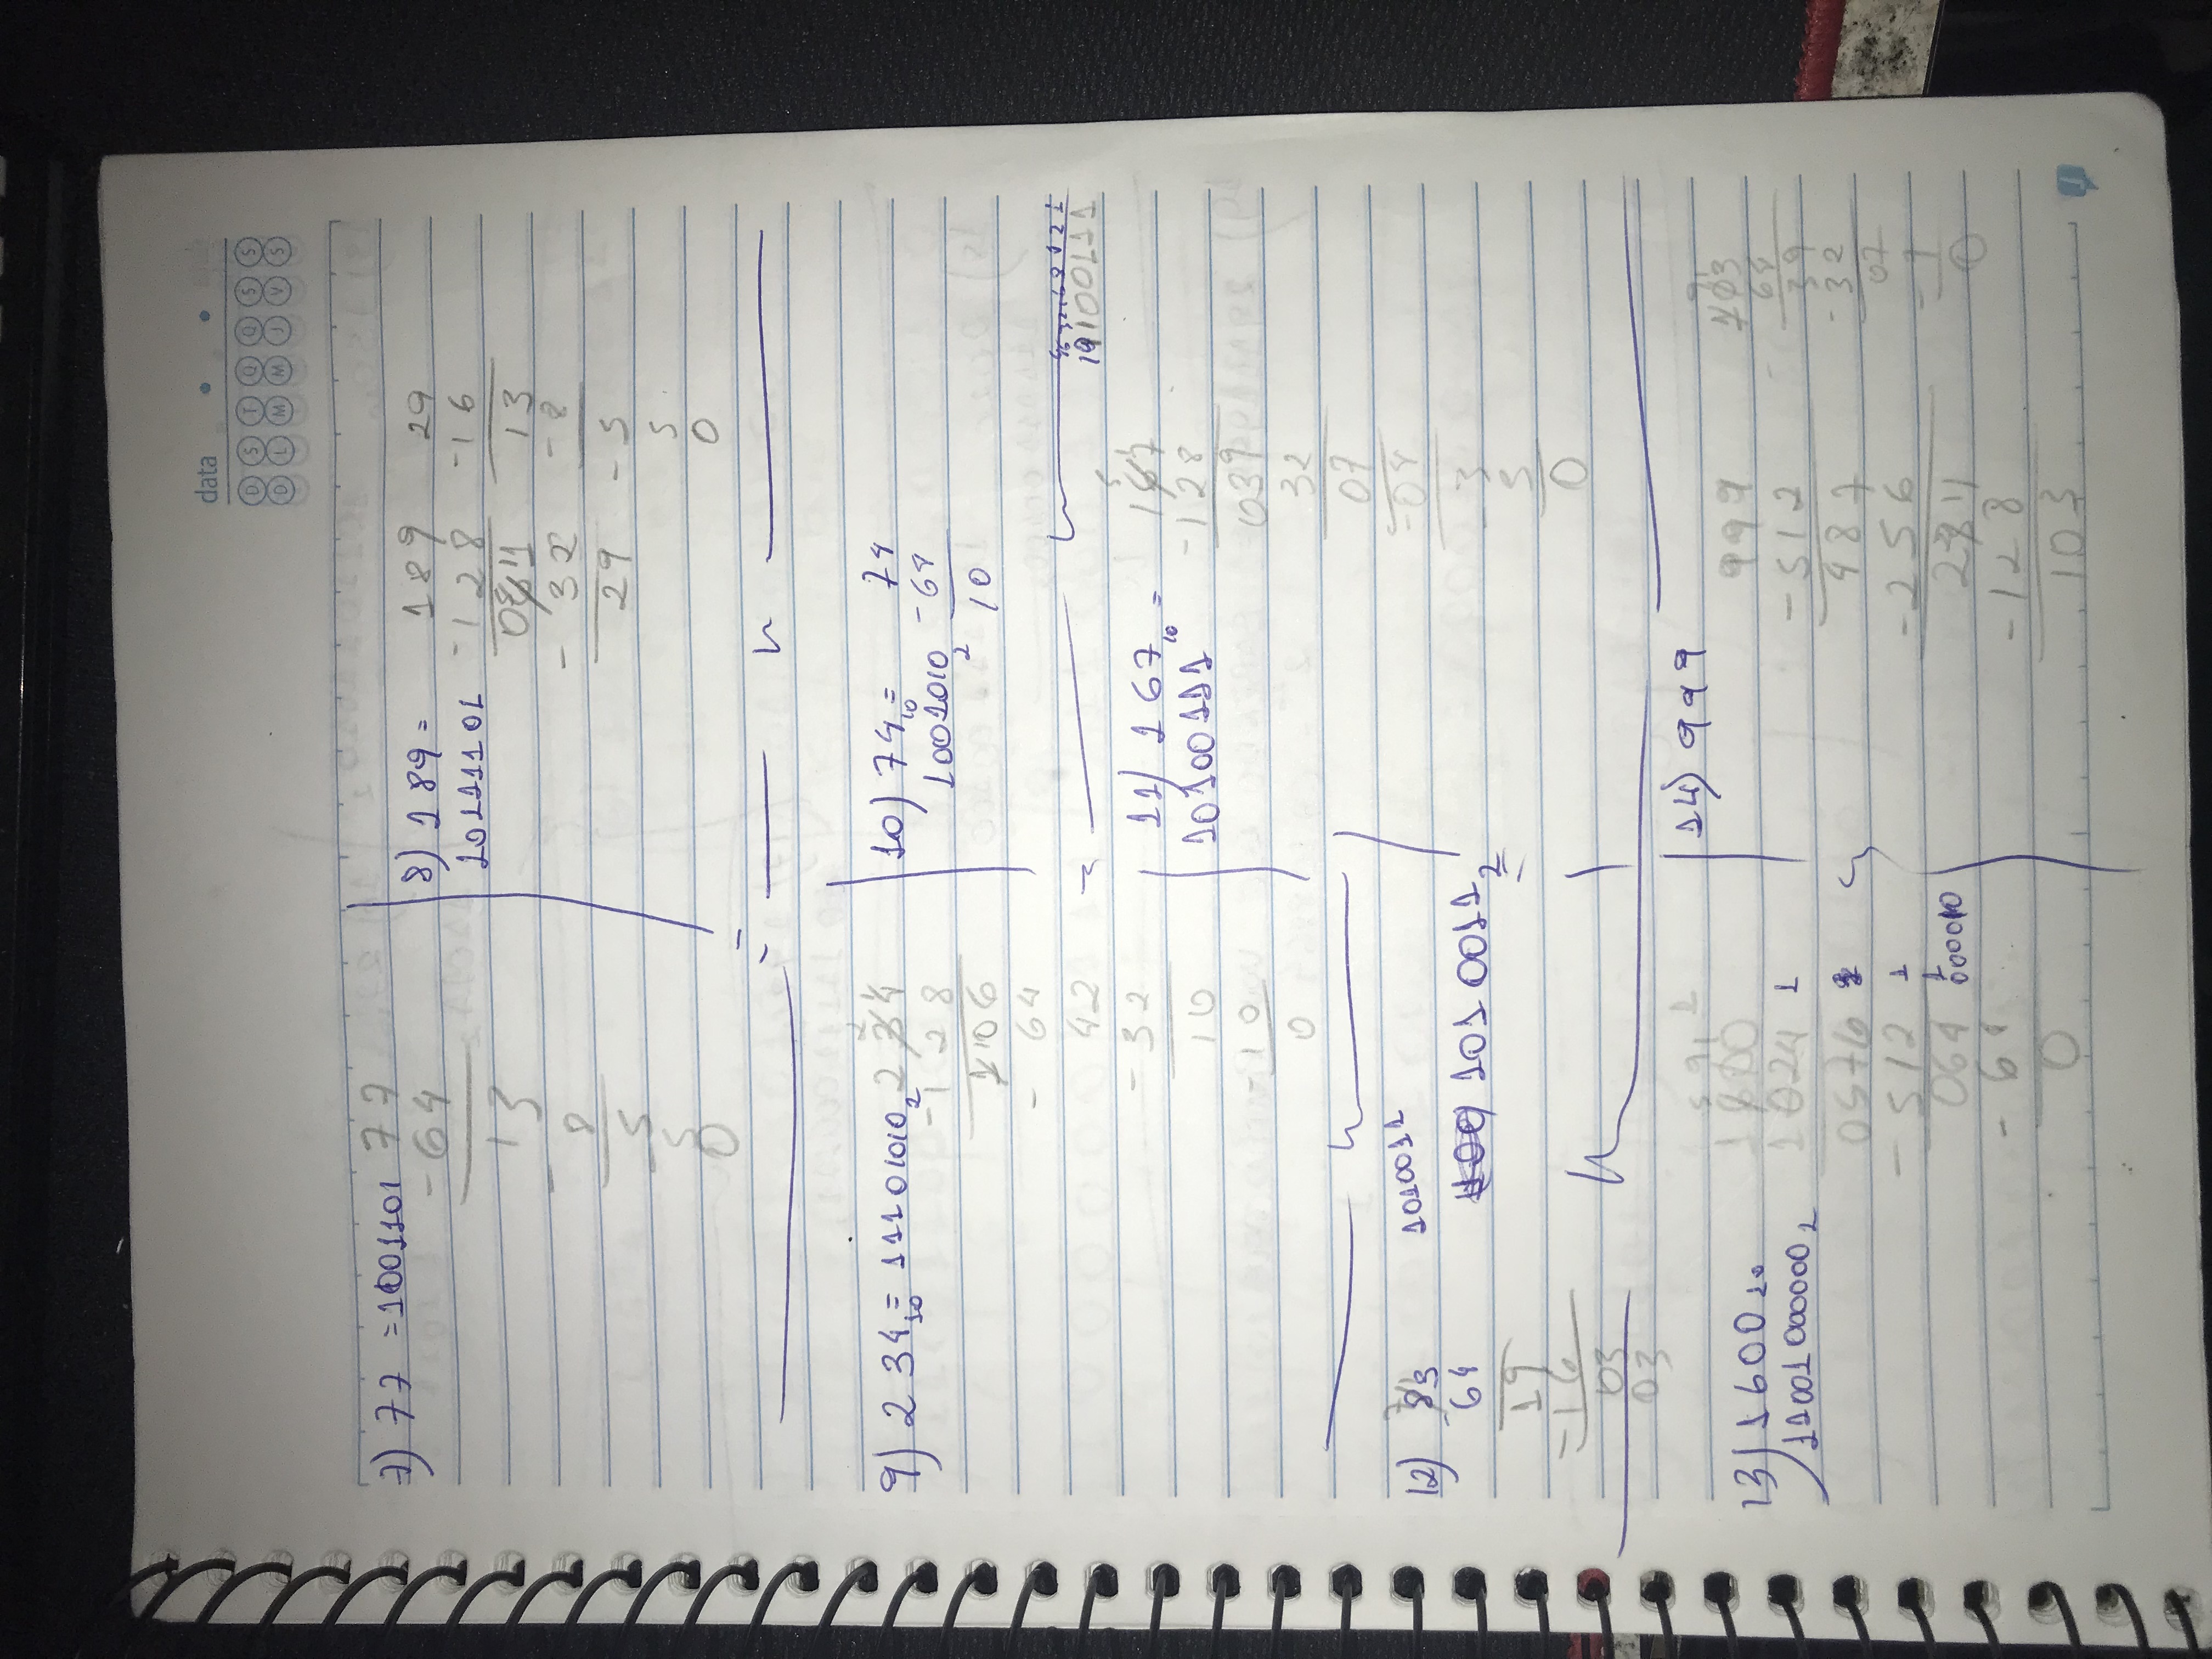 data
D S T Q Q S S
D L M M J V S
7) 77 = 1001101
77
- 64
13
- 8
- 5
5
0
8) 189 =
10111101
189
- 128
061
- 32
29
29
- 16
13
- 8
- 5
5
0
9) 234₁₀ = 11101010₂
234
- 128
106
- 64
42
- 32
10
- 10
0
10) 74₁₀ =
1001010₂
74
- 64
10
11) 167₁₀ =
10100111
10100111
167
- 128
039
32
07
- 04
- 3
3
0
12) 83
64
19
- 16
03
03
1010011
1010011₂
13) 1600₁₀
11001000000₂
1600
1024 1
0576
- 512 1
064 1
- 64
0
14) 999
999
- 512
487
- 256
231
- 128
103
103
- 64
39
- 32
07
- 7
0